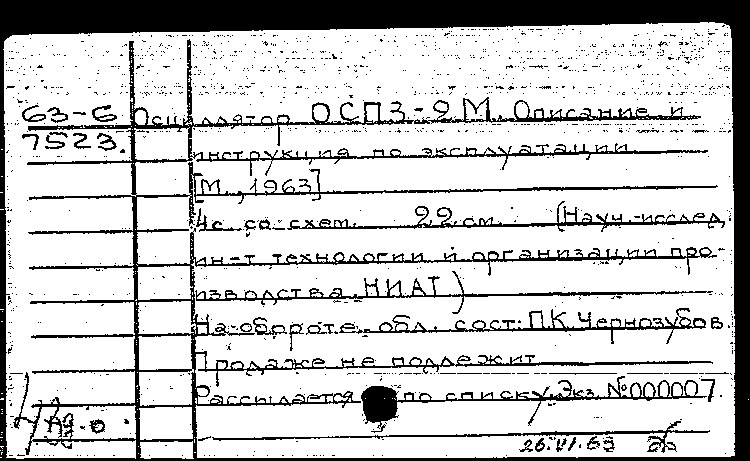 63-6 Осциллятор ОСПЗ-2М. Описание и
7523. инструкция по эксплуатации
[М., 1963]
4с. со схем. 22 см. (Науч.-исслед.
ин-т технологии и организации про-
изводства. НИАТ)
На обороте обл. сост: П.К. Чернозубов.
Продаже не подлежит
Рассылается по списку. Экз. №000007.
26.VI.63